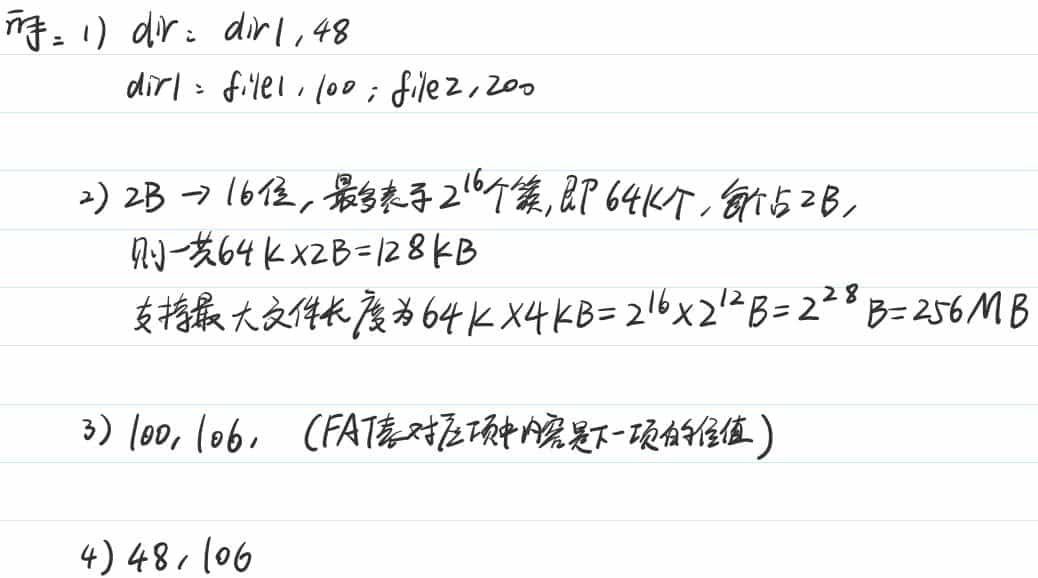 1) dir: dir1, 48
dir1: file1, 100; file2, 200
2) 2B → 16位, 最多表示 2^16个簇, 即 64K个, 每个占 2B,
则一共64K×2B=128KB
支持最大文件长度为64K×4KB=2^16×2^12B=2^28B=256MB
3) 100, 106, (FAT表对应项中内容是下一项的值)
4) 48, 106